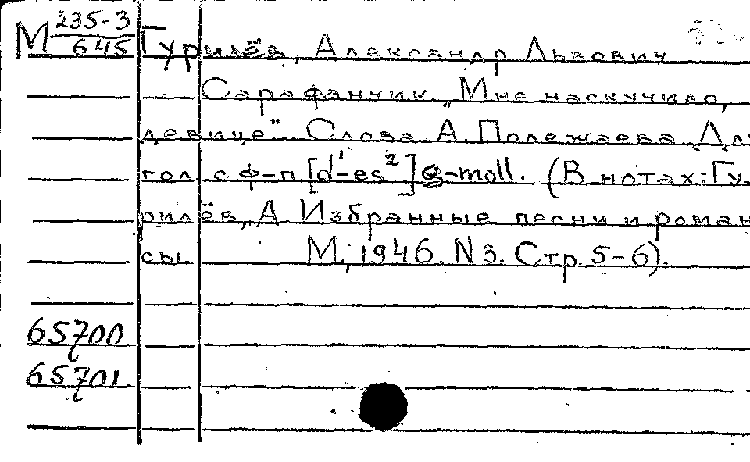 М 235-3
645
Гурилёв, Александр Львович
Сарафанчик. „Мне наскучило,
девице". Слова А. Полежаева. Для
гол. с ф-п [d'-es²] g-moll. (В нотах: Гу-
рилёв, А. Избранные песни и роман-
сы. М., 1946. N 3. Стр. 5-6).
65700
65701